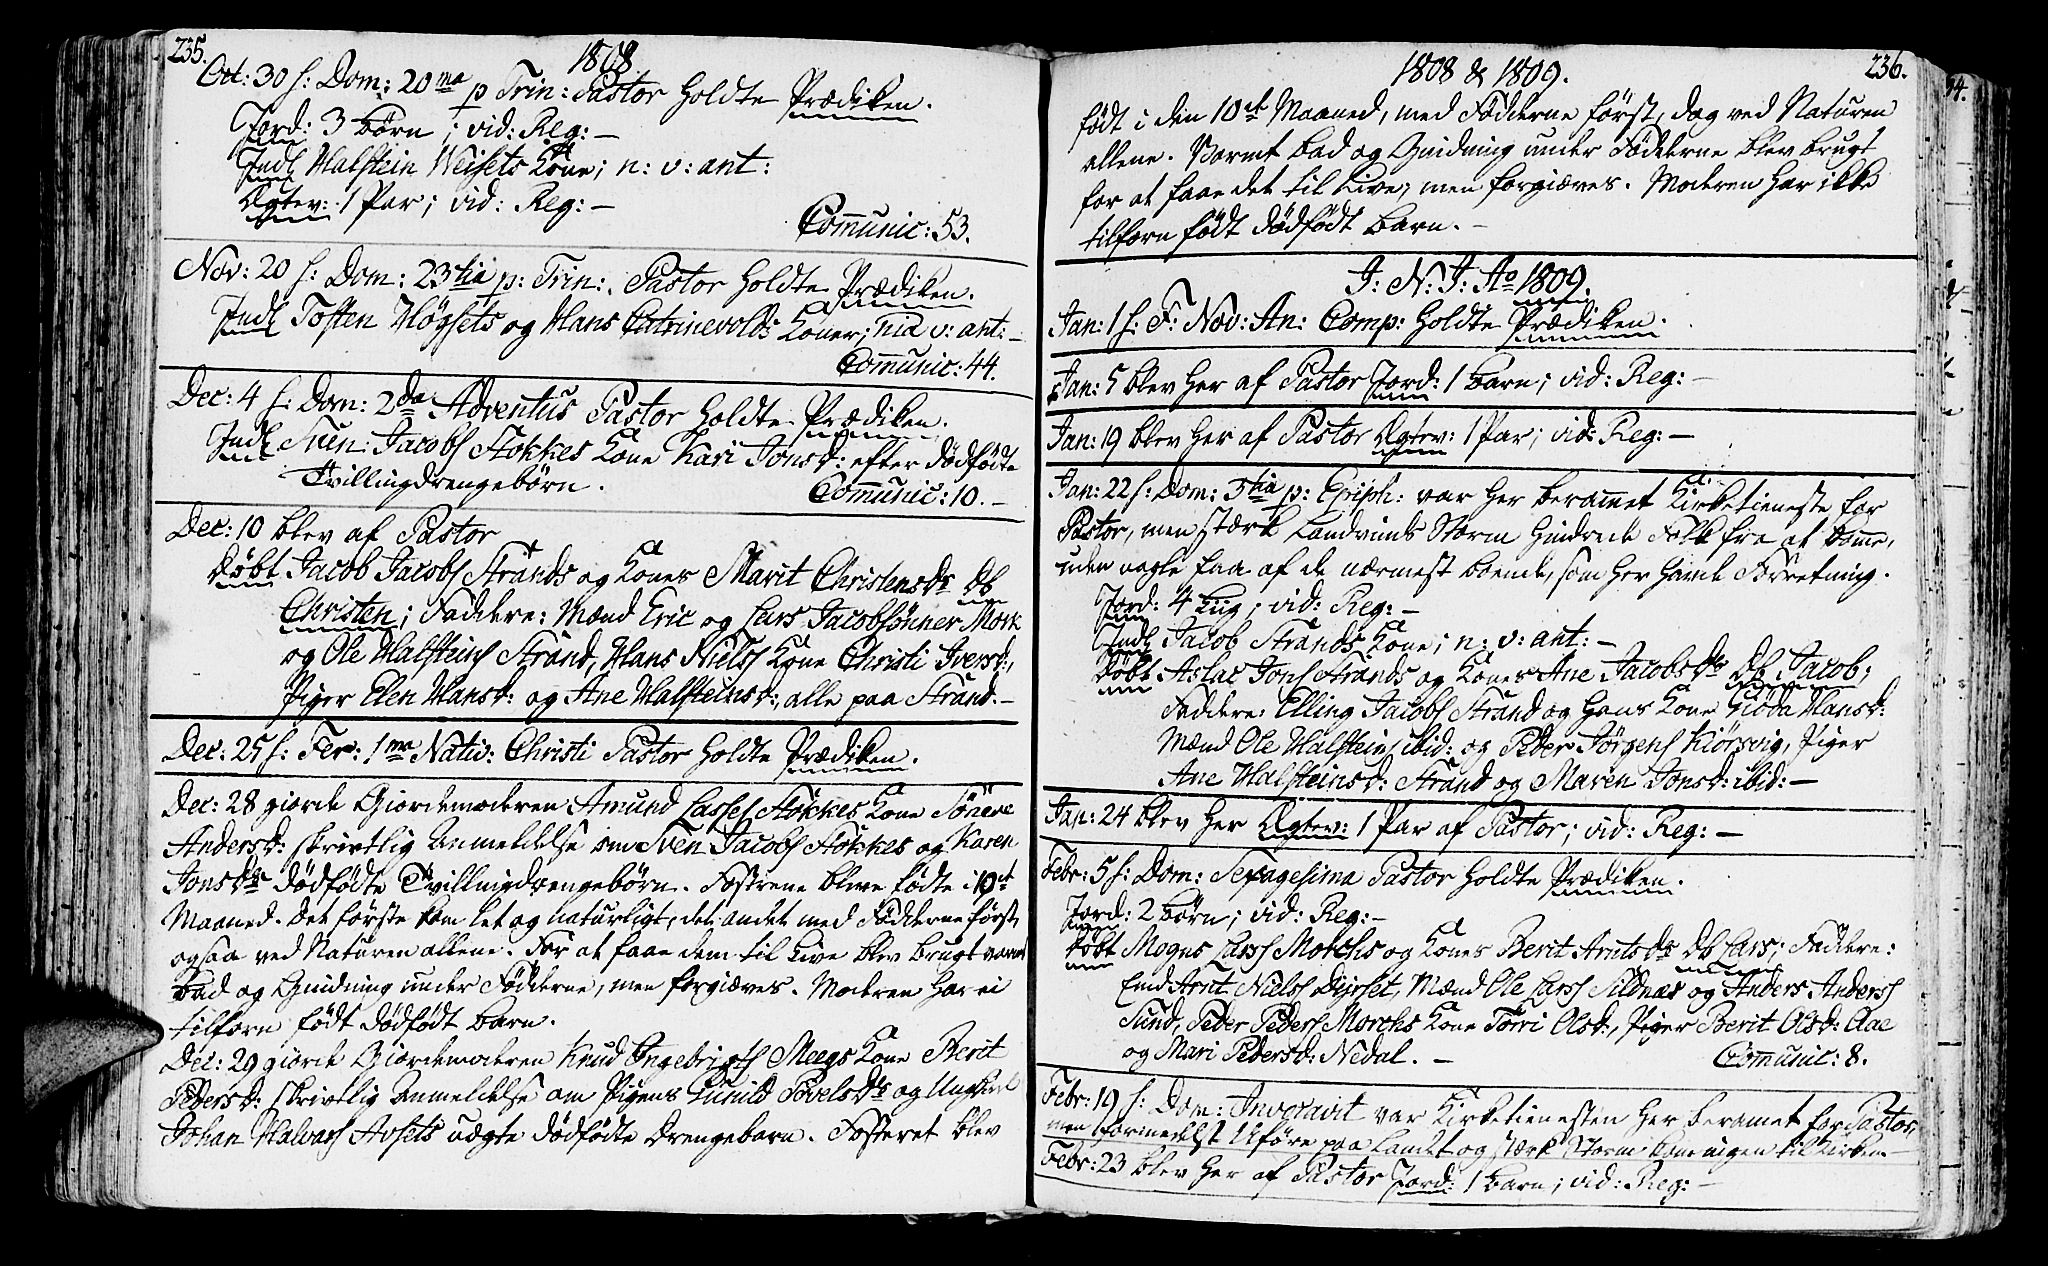 235.
1808
Oct: 30 s: Dom: 20ma p Trin: Pastor holdte Prædiken.
Jord: 3 børn; vid: Reg: –
Indl Halstein Weisets Kone; n: v: ant:
Ægtev: 1 Par; vid: Reg: –
Communic: 53.
Nov: 20 s: Dom: 23tia p: Trin: Pastor holdte Prædiken.
Indl Tosten Høgsets og Hans Catrinevolds Koner; nia v: ant: –
Communic: 44.
Dec: 4 s: Dom: 2da Adventus Pastor holdte Prædiken.
Indl Suen Jacobs Stokkes Kone Kari Jonsd: efter dødfødte
Tvillingdrengebørn.
Communic: 10. –
Dec: 10 blev af Pastor
Døbt Jacob Jacobs Strands og Kones Marit Christensdr Db
Christen; Faddere: Mænd Eric og Lars Jacobsønner Mork
og Ole Halsteins Strand, Hans Niels Kone Christi Iversd:,
Piger Elen Hansd: og Ane Halsteinsd:, alle paa Strand. –
Dec: 25 s: Fer: 1ma Nativ: Christi Pastor holdte Prædiken.
Dec: 28 giorde Giordemoderen Amund Lasses Stokkes Kone
Andersd: skrivtlig Anmeldelse om Sven Jacobs Stokkes og Karen
Jonsdrs dødfødte Tvillingdrengebørn. Fostrene bleve fødte i 10de
Maaned. Det første kom let og naturligt, det andet med Fødderne først,
ogsaa ved Naturen allene. For at faae dem til Live blev brugt varmt
Bad og Gnidning under Fødderne, men forgiæves. Moderen har ei
tilforn født dødfødt barn.
Dec: 29 giorde Giordemoderen Knud Ingebrigts Meegs Kone Berit
Pedersd: skrivtlig Anmeldelse om Pigens Gunild Povelsdrs og Ungkarl
Johan Halvars Avsets uægte dødfødte Drengebarn. Fosteret blev
1808 & 1809.
236.
født i den 10de Maaned, med Fødderne først, dog ved Naturen
allene. Varmt bad og Gnidning under Fødderne blev brugt
for at faae det til Live, men forgiæves. Moderen har ikke
tilforn født dødfødt barn. –
I: N: J: Ao 1809.
Jan: 1 s: F: Nov: An: Comp: holdte Prædiken.
Jan: 5 blev her af Pastor Jord: 1 barn; vid: Reg: –
Jan: 19 blev her af Pastor Ægtev: 1 Par; vid: Reg: –
Jan: 22 s: Dom: 3tia p: Epiph: var her berammet Kirketieneste for
Pastor, men stærk Landvinds Storm hindrede Folk fra at komme,
uden nogle faa af de nærmest boende, som her havde Forretning.
Jord: 4 Liig; vid: Reg: –
Indl Jacob Strands Kone; n: v: ant: –
Døbt Aslac Jons Strands og Kones Ane Jacobsdrs Db Jacob;
Faddere: Elling Jacobs Strand og hans Kone Giøda Hansd:
Mænd Ole Halsteins ibid: og Peder Jørgens Kiørsvig, Piger
Ane Halsteinsd: Strand og Maren Jonsd: ibid: –
Jan: 24 blev her Ægtev: 1 Par af Pastor; vid: Reg: –
Febr: 5 s: Dom: Sexagesima Pastor holdte Prædiken.
Jord: 2 børn; vid: Reg: –
Døbt Mogns Lars Morchs og Kones Berit Arntsdrs Db Lars; Faddere:
Emd Arnt Niels Dyrset, Mænd Ole Lars Sildnæs og Anders Anders
Sund, Peder Peders Morchs Kone Torri Olsd:, Piger Berit Olsd: Aae
og Mari Pedersd: Nedal. –
Communic: 8.
Febr: 19 s: Dom: Invocavit var Kirketienesten her beramet for Pastor,
men formedelst Uføre paa Landet og stærk Storm kom ingen til Kirken –
Febr: 23 blev her af Pastor Jord: 1 barn; vid: Reg: –